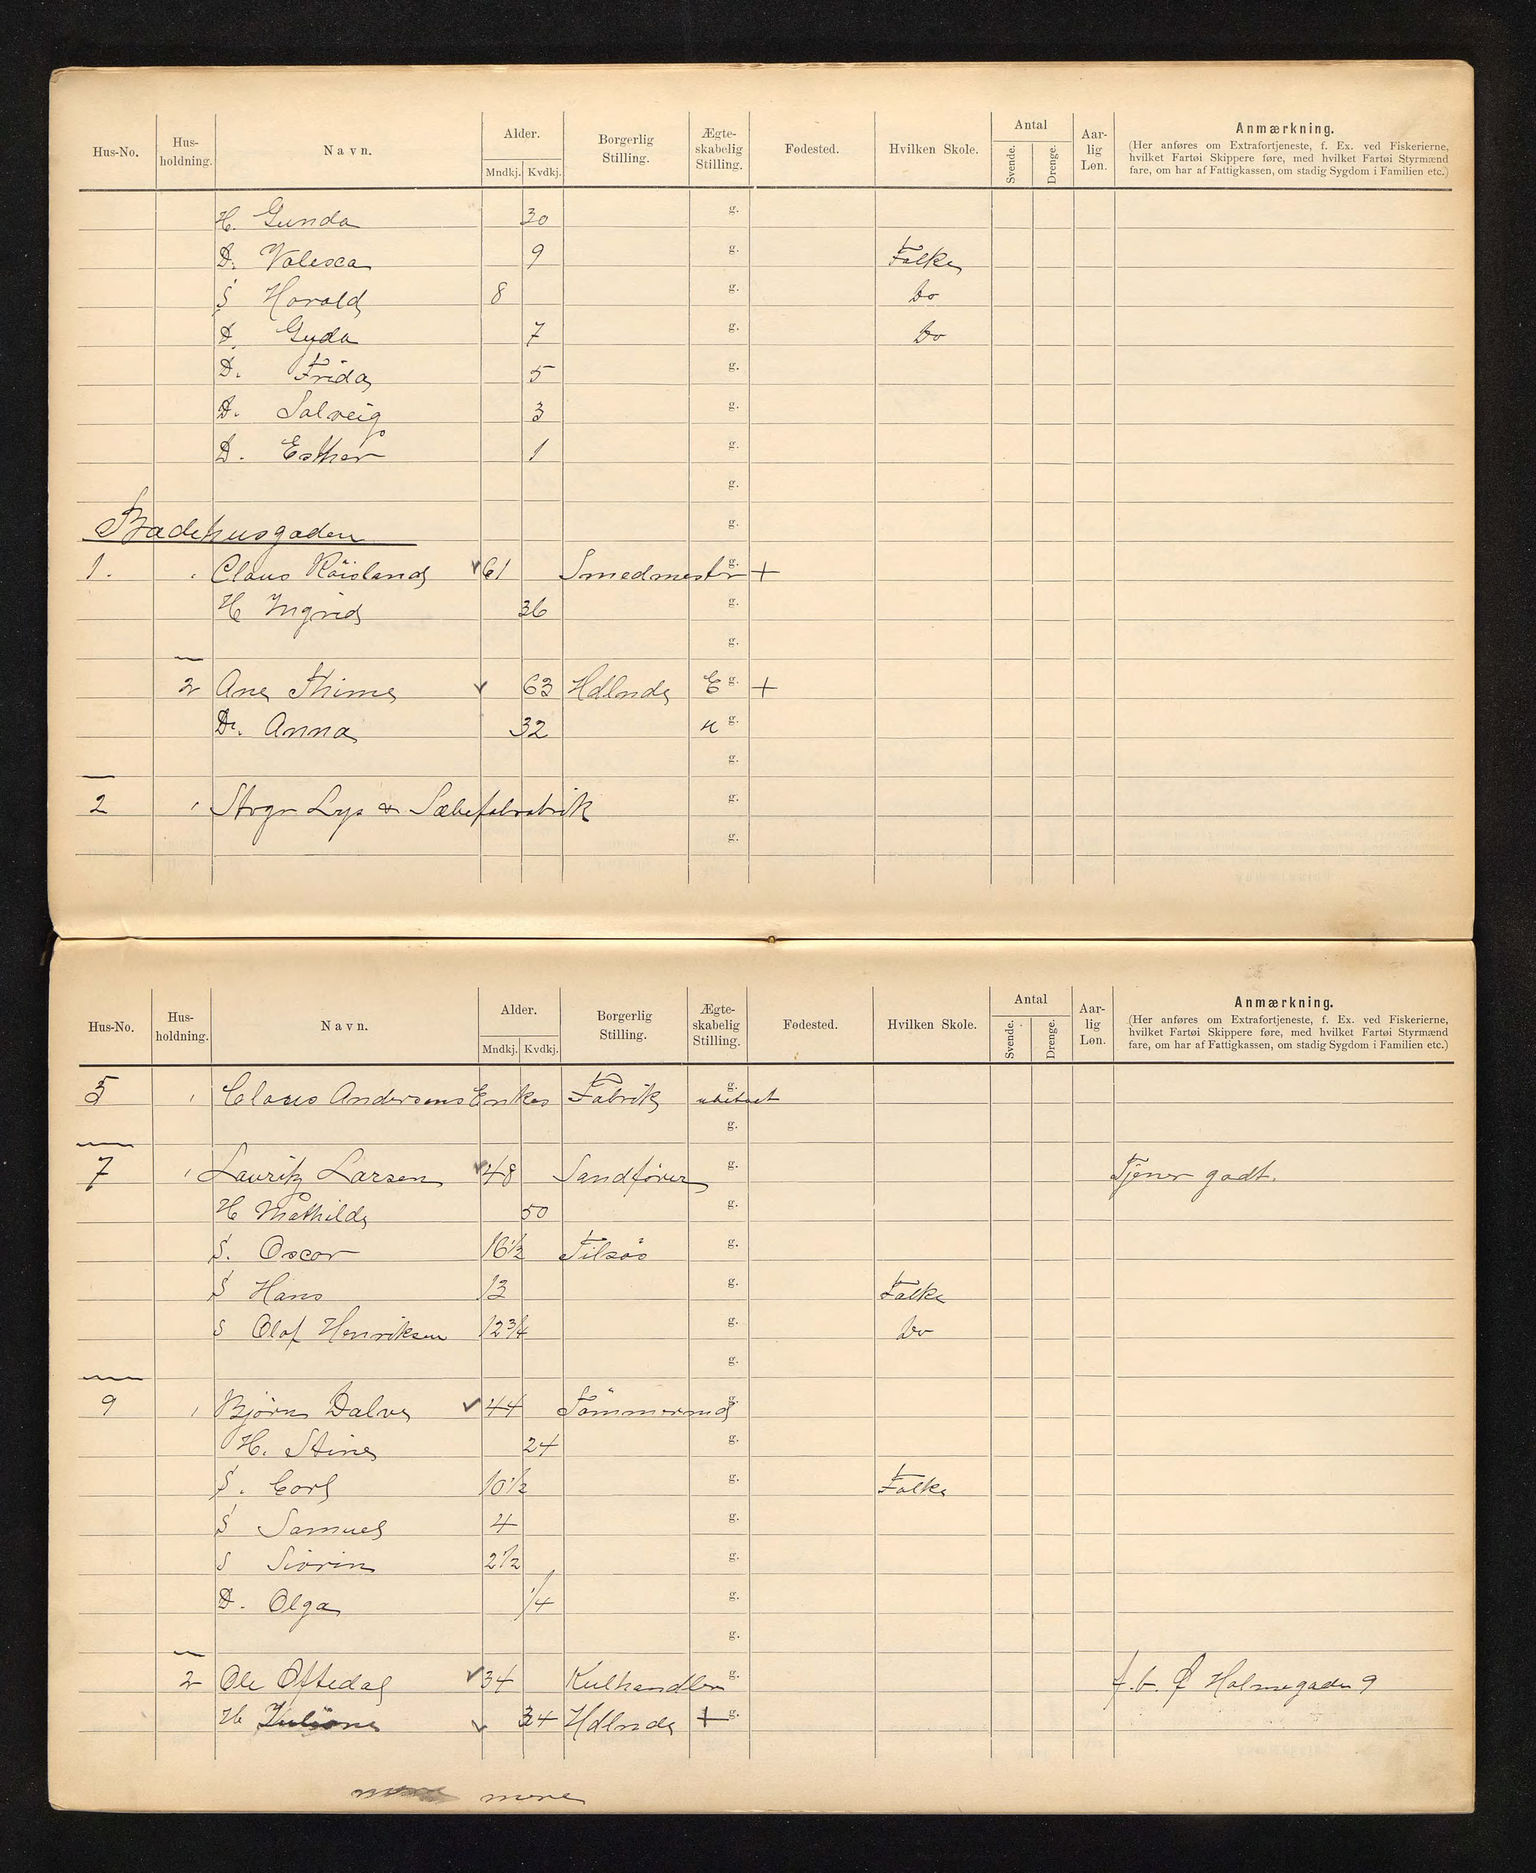 Hus-No. Hus-holdning. Navn. Alder. Mndkj. Kvdkj. Borgerlig Stilling. Ægte-skabelig Stilling. Fødested. Hvilken Skole. Antal Svende. Drenge. Aar-lig Løn. Anmærkning.
(Her anføres om Extrafortjeneste, f. Ex. ved Fiskerierne,
hvilket Fartøi Skippere føre, med hvilket Fartøi Styrmænd
fare, om har af Fattigkassen, om stadig Sygdom i Familien etc.)
H. Gunda 30 g.
D. Valesca 9 g. Folke
S Harald 8 g. Do
D. Gyda 7 g. Do
D. Frida 5 g.
D. Solveig 3 g.
D. Esther 1 g.
g.
Badehusgaden g.
1. Claus Röisland 61 Smedmester g. +
H Ingrid 36 g.
g.
2 Ane Thime 63 Hdlnde E g. +
Dr. Anna 32 u g.
g.
2 Stvgr Lys & Sæbefabrabrik g.
g.
Hus-No. Hus-holdning. Navn. Alder. Mndkj. Kvdkj. Borgerlig Stilling. Ægte-skabelig Stilling. Fødested. Hvilken Skole. Antal Svende. Drenge. Aar-lig Løn. Anmærkning.
(Her anføres om Extrafortjeneste, f. Ex. ved Fiskerierne,
hvilket Fartøi Skippere føre, med hvilket Fartøi Styrmænd
fare, om har af Fattigkassen, om stadig Sygdom i Familien etc.)
5 Claus Andersens Enke Fabrik g. ubeboet
g.
7 Lauritz Larsen 48 Sandförer g. Tjener godt.
H Mathilde 50 g.
S. Oscar 16½ Tilsøs g.
S Hans 13 g. Folke
S Olaf Henriksen 12¾ g. Do
g.
9 Bjørn Dalve 44 Tömmermd g.
H. Stine 24 g.
S. Carl 10½ g. Folke
S Samuel 4 g.
S Sivrin 2½ g.
D. Olga ¼ g.
g.
2 Ole Oftedal 34 Kulhandler g. f.b. Ø Holmegade 9
H Juliane 34 Hdlnde + g.
mere